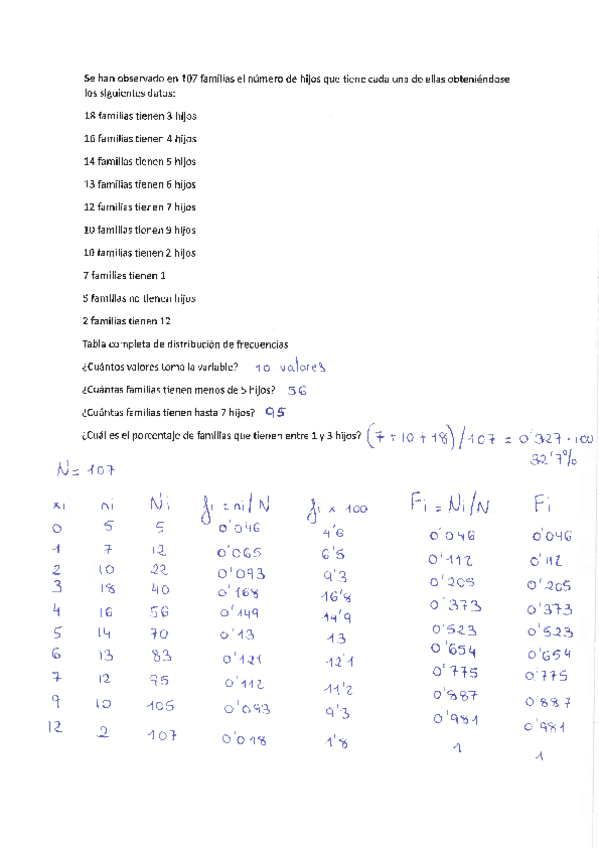 Se han observado en 107 familias el número de hijos que tiene cada una de ellas obteniéndose
los siguientes datos:
18 familias tienen 3 hijos
16 familias tienen 4 hijos
14 familias tienen 5 hijos
13 familias tienen 6 hijos
12 familias tienen 7 hijos
10 familias tienen 9 hijos
10 familias tienen 2 hijos
7 familias tienen 1
5 familias no tienen hijos
2 familias tienen 12
Tabla completa de distribución de frecuencias
¿Cuántos valores toma la variable? 10 valores
¿Cuántas familias tienen menos de 5 hijos? 56
¿Cuántas familias tienen hasta 7 hijos? 95
¿Cuál es el porcentaje de familias que tienen entre 1 y 3 hijos? (7+10+18)/107 = 0'327·100
32'7%
N = 107
xi ni Ni fi = ni/N fi x 100 Fi = Ni/N Fi
0 5 5 0'046 4'6 0'046 0'046
1 7 12 0'065 6'5 0'112 0'112
2 10 22 0'093 9'3 0'205 0'205
3 18 40 0'168 16'8 0'373 0'373
4 16 56 0'149 14'9 0'523 0'523
5 14 70 0'13 13 0'654 0'654
6 13 83 0'121 12'1 0'775 0'775
7 12 95 0'112 11'2 0'887 0'887
9 10 105 0'093 9'3 0'981 0'981
12 2 107 0'018 1'8 1 1